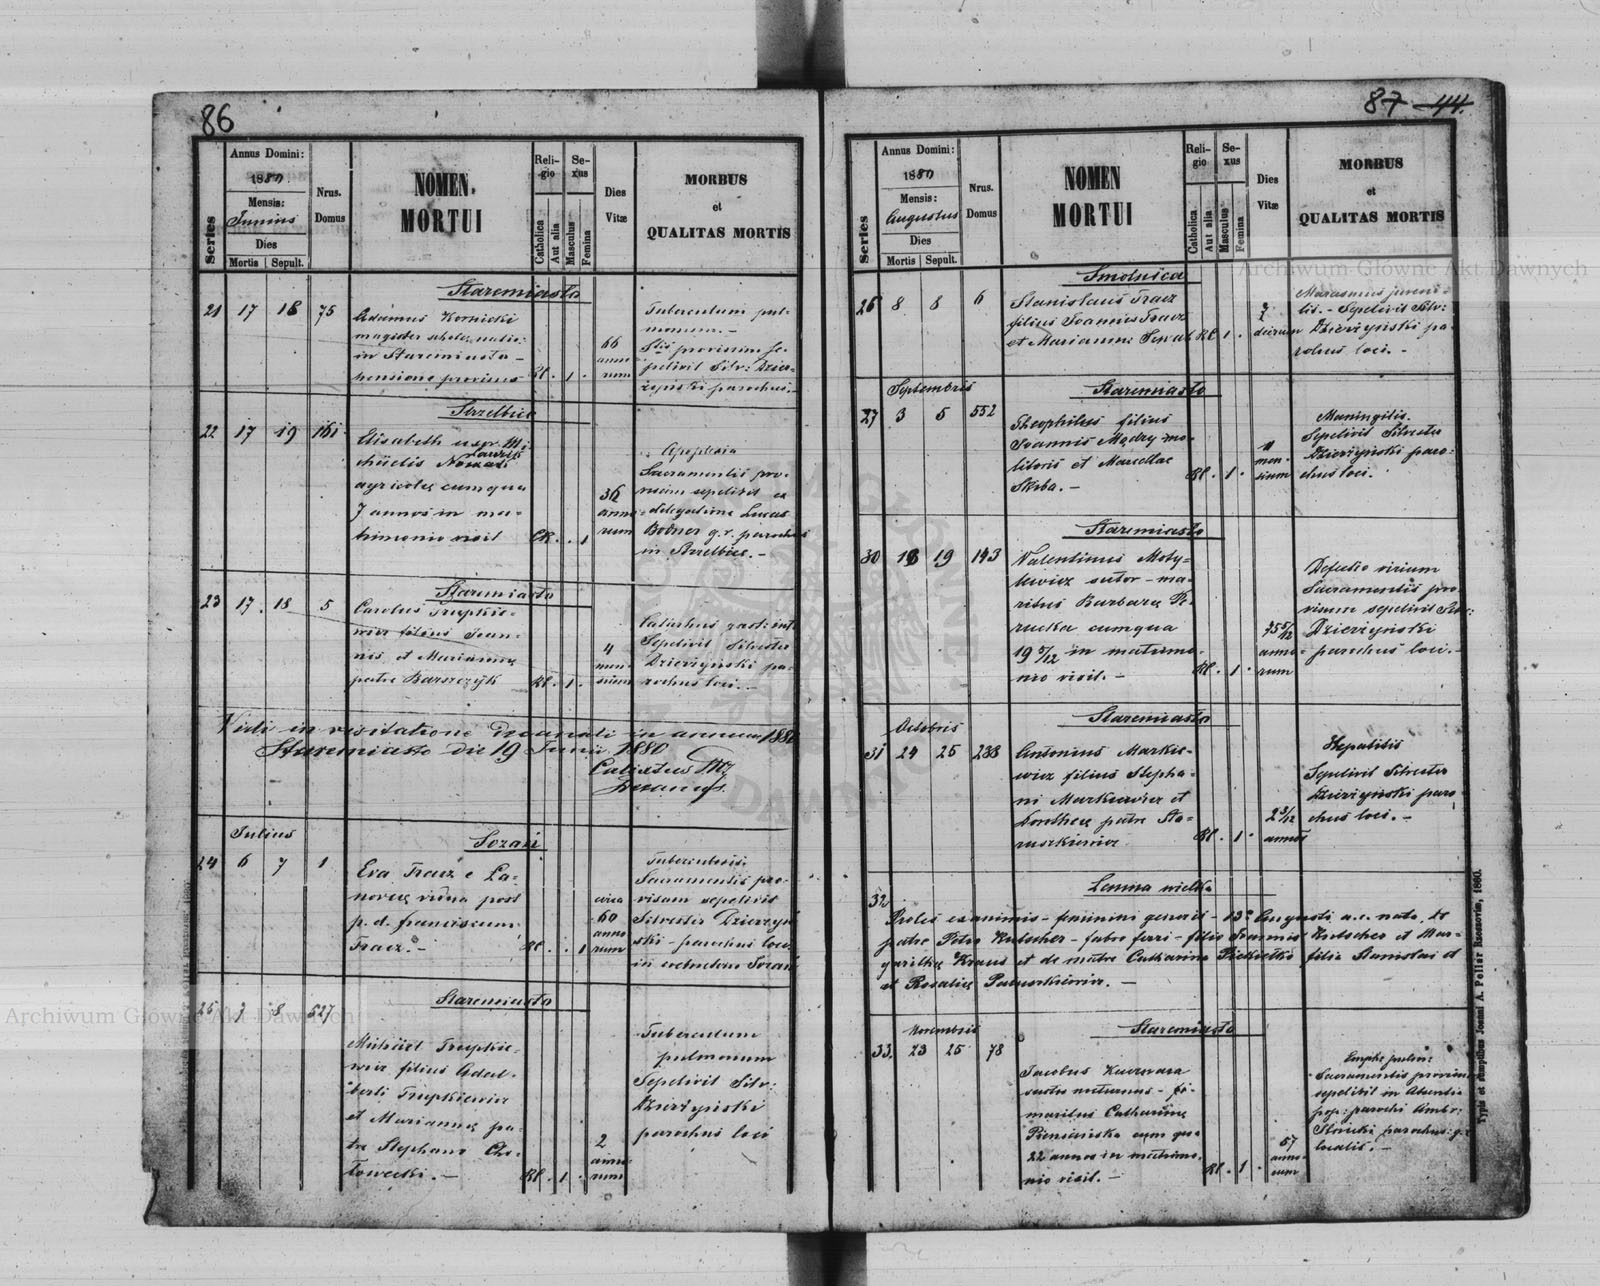 86
Series
Annus Domini:
1880.
Mensis:
Junius
Dies
Mortis | Sepult.
Nrus.
Domus
NOMEN.
MORTUI
Religio
Catholica
Aut alia
Sexus
Masculus
Femina
Dies
Vitæ
MORBUS
et
QUALITAS MORTIS
Staremiasto
21 17 18 75
Adamus Kornicki
magister
in Staremiasto
Rl. 1.
66
anno
rum
Tuberculum pul-
monum. -
provisum se-
pelivit Silv: Dzier-
żyński parochus.
Strzelbice
22 17 19 161
Elisabeth uxor Mi-
chäelis
agricolę cum qua
7 annos in ma-
trimonio vixit
1
36
anno-
rum
Apoplexia
Sacramentis pro-
visam sepelivit ex
delegatione Lucas
Bobner g. r. parochus
in Strzelbice. -
Staremiasto
23 17. 18 5
Carolus Trupkie-
wicz filius Joan-
nis et Mariannę
patre Barszczyk
Rl. 1.
4
men-
sium
Catarrhus
Sepelivit Silvester
Dzierżyński pa-
rochus loci. -
Vidi in visitatione Decanali in annum 1880
Staremiasto die 19 Junii 1880
Decanus
Julius
Sozań
24 6 7 1
Eva Tracz e Ła-
novecę vidua post
p. d. franciscum
Tracz. -
Rl. 1
circa
60
anno
rum
Tuberculosis.
Sacramentis pro-
visam sepelivit
Silvester Dzierżyń
ski - parochus loci
in Sozań
Staremiasto
25 7 8 527
Michäel Trupkie-
wicz filius Adal-
berti Trupkiewicz
et Mariannę pa-
tre Stephano Cho-
łowecki. -
Rl. 1.
2
anno-
rum
Tuberculum
pulmonum
Sepelivit Silv:
Dzierżyński
parochus loci
87 44.
Series
Annus Domini:
1880
Mensis:
Augustus
Dies
Mortis | Sepult.
Nrus.
Domus
NOMEN
MORTUI
Religio
Catholica
Aut alia
Sexus
Masculus
Femina
Dies
Vitæ
MORBUS
et
QUALITAS MORTIS
Smolnica
26 8 8 6
Stanislaus Tracz
filius Joannis Tracz
et Mariannę
Rl. 1.
dierum
Marasmus
lis. - Sepelivit Silv:
Dzierżyński pa
rochus loci. -
Septembris
Staremiasto
27 3 5 552
Theophilus filius
Joannis Mądry mo-
litoris et Marcellae
Skiba. -
Rl. 1.
men-
sium
Maningitis.
Sepelivit Silvester
Dzierżyński paro-
chus loci.
Staremiasto
30 18 19 143
Valentinus Moty-
lewicz sutor - ma-
ritus Barbarę Pe-
rucka cum qua
19 5/12 in matrimo-
nio vixit. -
Rl. 1.
75 5/12
anno-
rum
Defectio virium
Sacramentis pro-
visum sepelivit Silv:
Dzierżyński
parochus loci. -
Octobris
Staremiasto
31 24 25 238
Antonius Markie-
wicz filius Stepha-
ni Markiewicz et
Dorotheę patre Sta-
ruszkiewicz
Rl. 1.
2 3/12
annos
Hepatitis
Sepelivit Silvester
Dzierżyński paro
chus loci. -
Lenina wielka
32
Proles exanimis - feminini generis - 13a Augusti a. c. nata ex
patre Petro Kutscher - fabro ferri - filio Joannis Kutscher et Mar-
garithę Kraus et de matre Catharina Piekiełko filia Stanislai et
et Rosalię Paluszkiewicz. -
Novembris
Staremiasto
33. 23 25 78
Jacobus Kaczmara
custos nocturnus -
maritus Catharinę
Pieniańska cum qua
22 annos in matrimo-
nio vixit. -
Rl. 1.
57
anno-
rum
Sacramentis provisum
sepelivit in absentia
pop: parochi Ambr:
parochus g. r.
localis. -
Typis et sumptibus Joanni A. Pellar Rzeszoviæ, 1860.
Archiwum Główne Akt Dawnych
Archiwum Główne Akt Dawnych